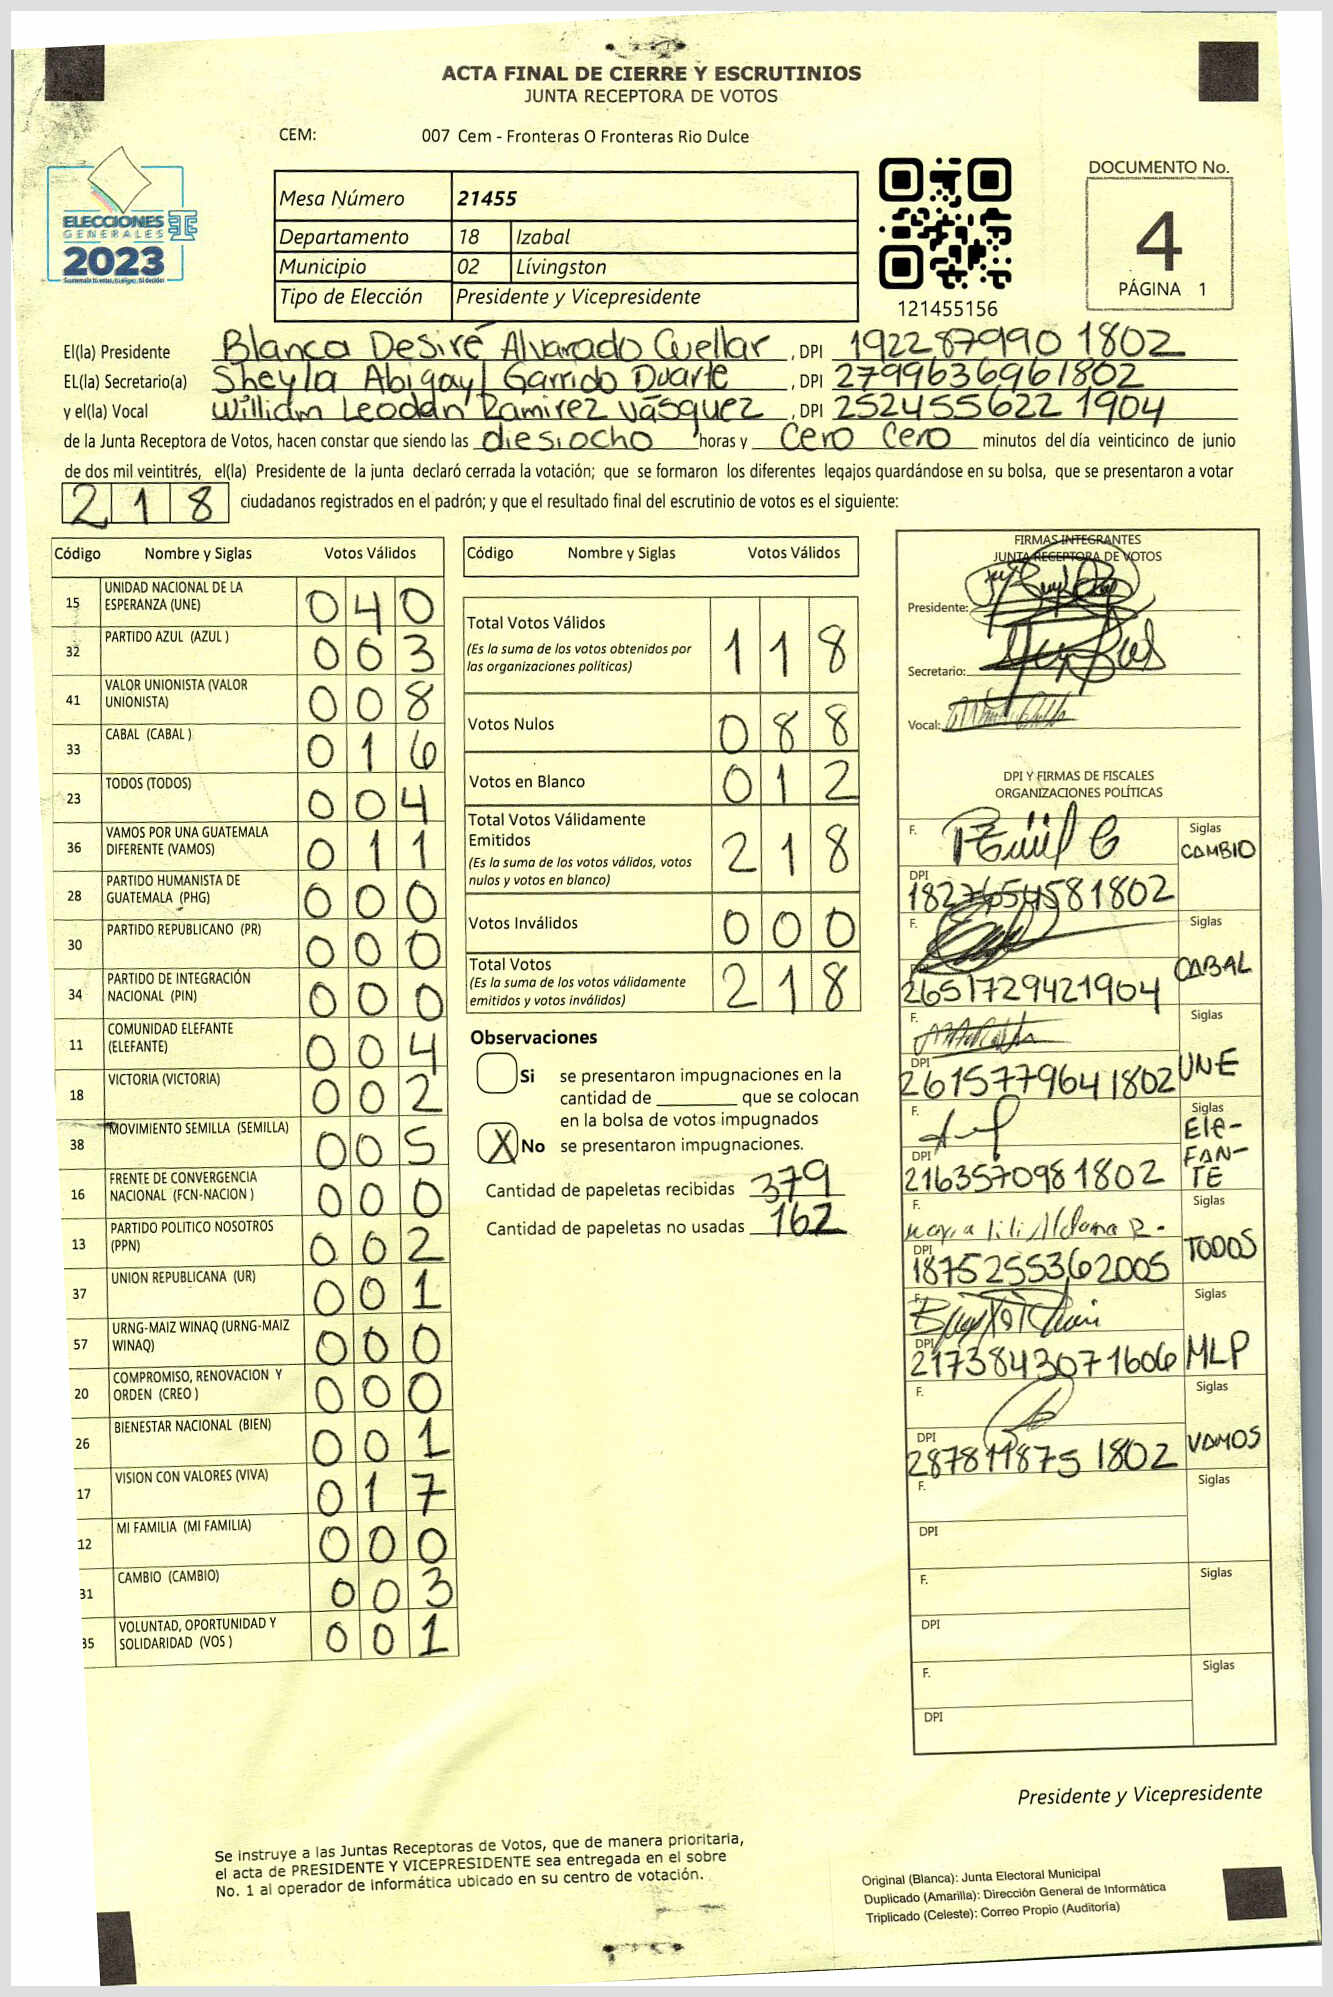 ACTA FINAL DE CIERRE Y ESCRUTINIOS
JUNTA RECEPTORA DE VOTOS
CEM: 007 Cem - Fronteras O Fronteras Rio Dulce
ELECCIONES
GENERALES
2023
Mesa Número 21455
Departamento 18 Izabal
Municipio 02 Lívingston
Tipo de Elección Presidente y Vicepresidente
121455156
DOCUMENTO No.
4
PÁGINA 1
El(la) Presidente Blanca Desiré Alvarado Cuellar, DPI 1922 87990 1802
EL(la) Secretario(a) Sheyla Abigayl Garrido Duarte, DPI 2799636961802
y el(la) Vocal William Leodan Ramirez Vásquez, DPI 252455622 1904
de la Junta Receptora de Votos, hacen constar que siendo las diesiocho horas y cero cero minutos del día veinticinco de junio
de dos mil veintitrés, el(la) Presidente de la junta declaró cerrada la votación; que se formaron los diferentes legajos guardándose en su bolsa, que se presentaron a votar
218 ciudadanos registrados en el padrón; y que el resultado final del escrutinio de votos es el siguiente:
Código Nombre y Siglas Votos Válidos
15 UNIDAD NACIONAL DE LA ESPERANZA (UNE) 040
32 PARTIDO AZUL (AZUL ) 003
41 VALOR UNIONISTA (VALOR UNIONISTA) 008
33 CABAL (CABAL ) 016
23 TODOS (TODOS) 004
36 VAMOS POR UNA GUATEMALA DIFERENTE (VAMOS) 011
28 PARTIDO HUMANISTA DE GUATEMALA (PHG) 000
30 PARTIDO REPUBLICANO (PR) 000
34 PARTIDO DE INTEGRACIÓN NACIONAL (PIN) 000
11 COMUNIDAD ELEFANTE (ELEFANTE) 004
18 VICTORIA (VICTORIA) 002
38 MOVIMIENTO SEMILLA (SEMILLA) 005
16 FRENTE DE CONVERGENCIA NACIONAL (FCN-NACION ) 000
13 PARTIDO POLITICO NOSOTROS (PPN) 002
37 UNION REPUBLICANA (UR) 001
57 URNG-MAIZ WINAQ (URNG-MAIZ WINAQ) 000
20 COMPROMISO, RENOVACION Y ORDEN (CREO ) 000
26 BIENESTAR NACIONAL (BIEN) 001
17 VISION CON VALORES (VIVA) 017
12 MI FAMILIA (MI FAMILIA) 000
31 CAMBIO (CAMBIO) 003
35 VOLUNTAD, OPORTUNIDAD Y SOLIDARIDAD (VOS ) 001
Código Nombre y Siglas Votos Válidos
Total Votos Válidos 118
(Es la suma de los votos obtenidos por
las organizaciones políticas)
Votos Nulos 088
Votos en Blanco 012
Total Votos Válidamente
Emitidos 218
(Es la suma de los votos válidos, votos
nulos y votos en blanco)
Votos Inválidos 000
Total Votos 218
(Es la suma de los votos válidamente
emitidos y votos inválidos)
Observaciones
Si se presentaron impugnaciones en la
cantidad de ________ que se colocan
en la bolsa de votos impugnados
X No se presentaron impugnaciones.
Cantidad de papeletas recibidas 379
Cantidad de papeletas no usadas 162
FIRMAS INTEGRANTES
JUNTA RECEPTORA DE VOTOS
Presidente:
Secretario:
Vocal:
DPI Y FIRMAS DE FISCALES
ORGANIZACIONES POLÍTICAS
F. Siglas CAMBIO
DPI 1827654581802
F. Siglas CABAL
DPI 2651729421904
F. Siglas UNE
DPI 2615779641802
F. Siglas ELEFANTE
DPI 2163570981802
F. Siglas TODOS
DPI 1875255362005
F. Siglas MLP
DPI 2173843071606
F. Siglas VAMOS
DPI 287811875 1802
F. Siglas
DPI
F. Siglas
DPI
F. Siglas
DPI
Presidente y Vicepresidente
Se instruye a las Juntas Receptoras de Votos, que de manera prioritaria,
el acta de PRESIDENTE Y VICEPRESIDENTE sea entregada en el sobre
No. 1 al operador de informática ubicado en su centro de votación.
Original (Blanca): Junta Electoral Municipal
Duplicado (Amarilla): Dirección General de Informática
Triplicado (Celeste): Correo Propio (Auditoría)